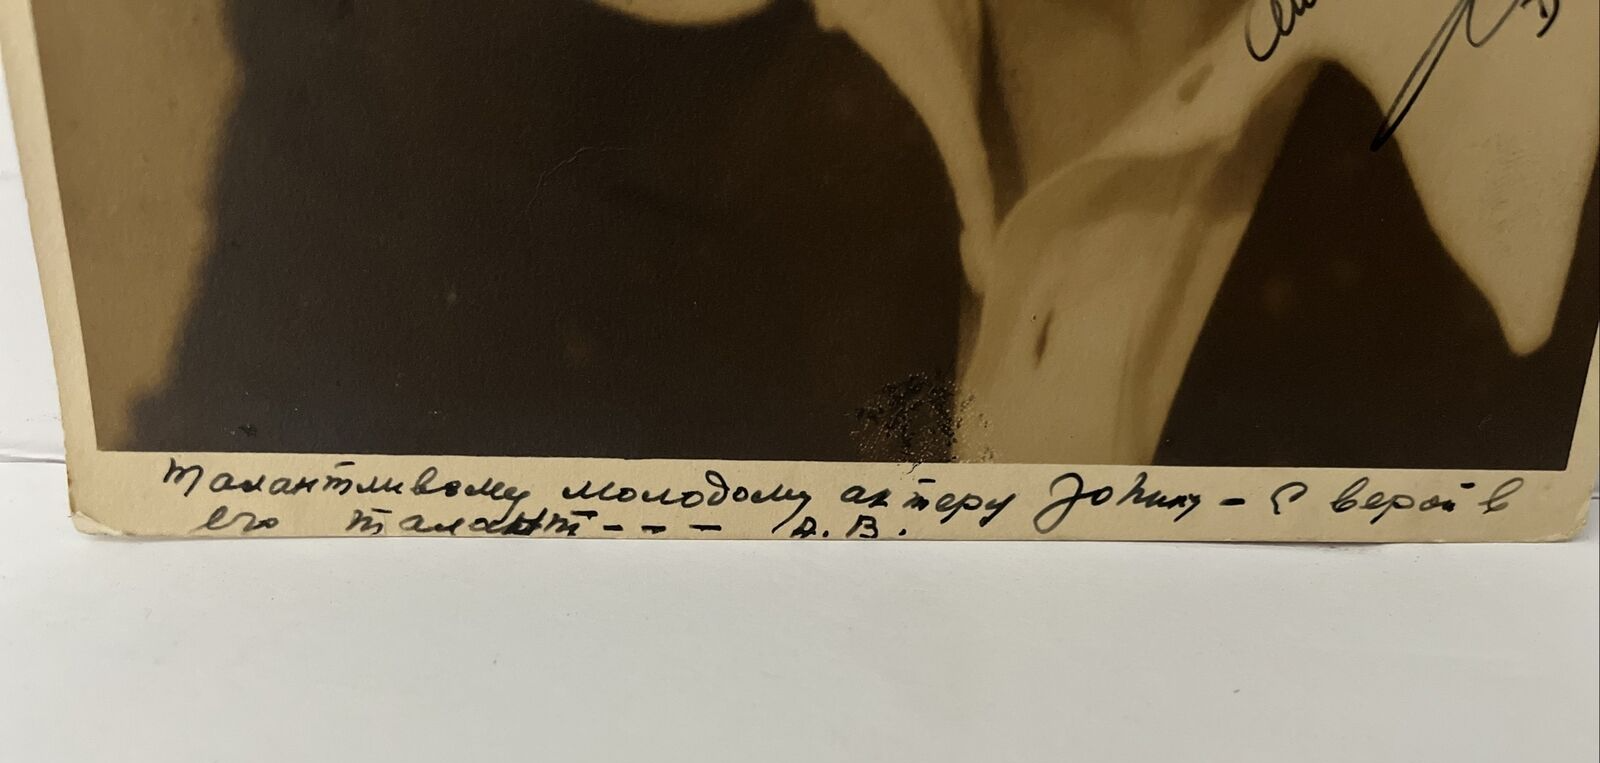 Талантливому молодому актеру Johnny – С верой в
его талант - - - А. В.